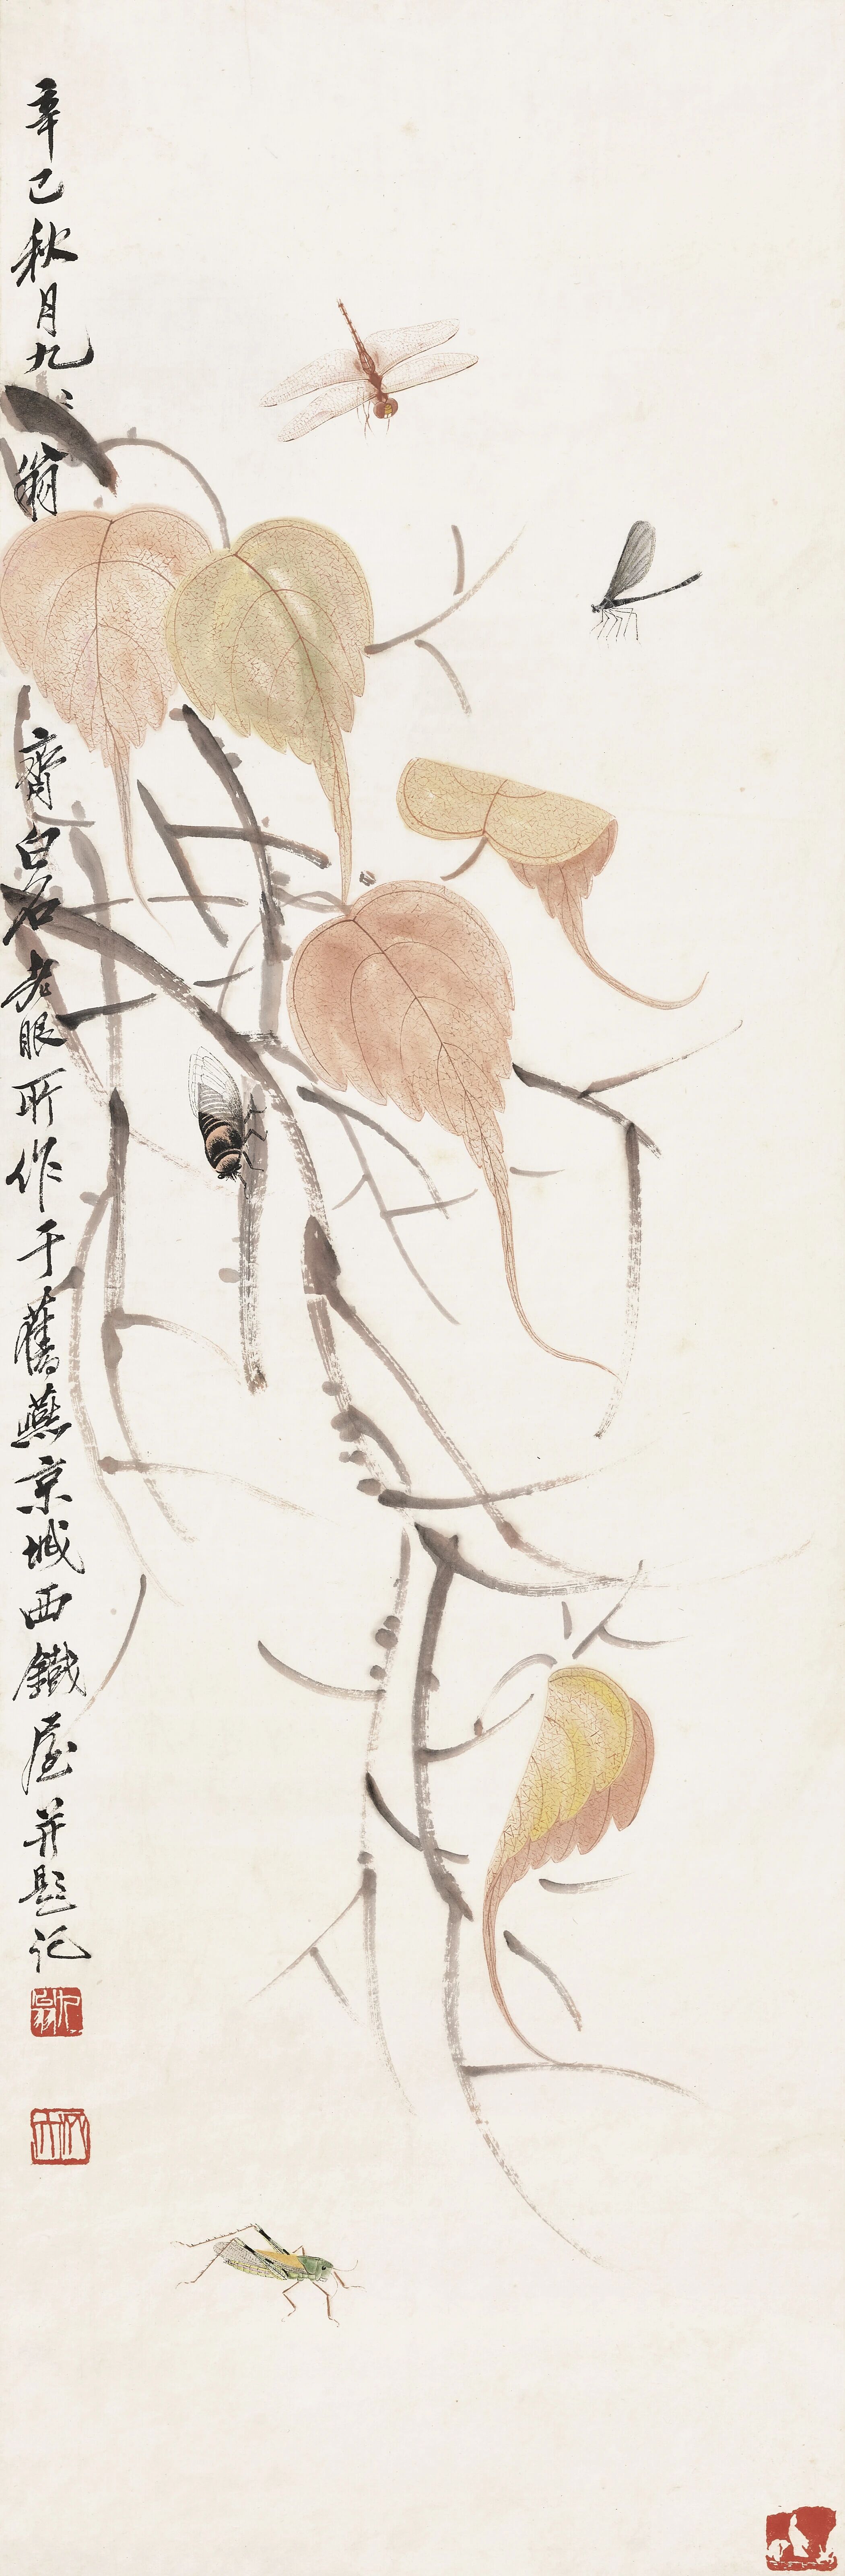 辛巳秋月九〻翁齊白石老眼所作于舊燕京城西鐵屋并題記